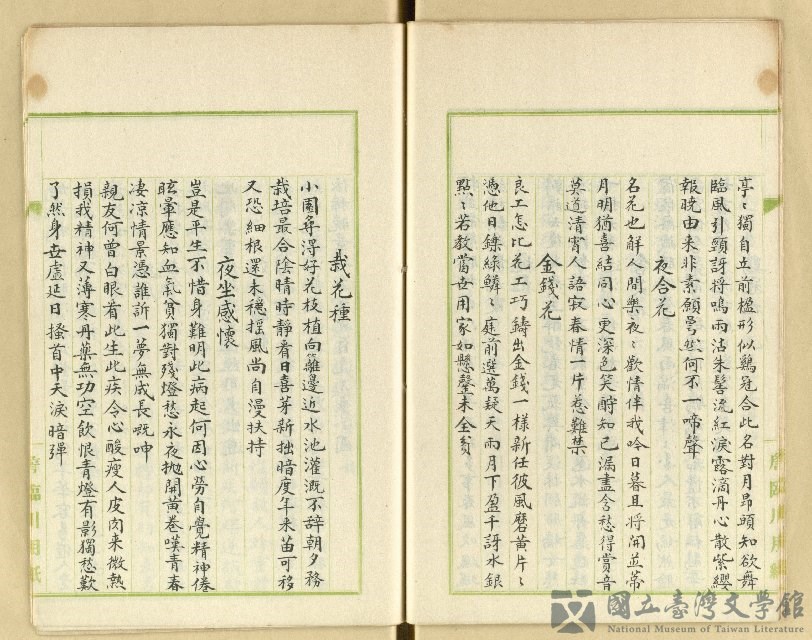 亭〻獨自立前楹形似鷄冠合此名對月昂頭知欲舞
臨風引頸訝將鳴雨沾朱髻流紅淚露滴丹心散紫纓
報曉由来非素願曷然何不一啼聲
夜合花
名花也解人間樂夜〻歡情伴我吟日暮且將開並蒂
月明猶喜結同心更深色笑酧知己漏盡含愁得賞音
莫道清宵人語寂春情一片惹難禁
金錢花
良工怎比花工巧鑄出金錢一樣新任彼風磨黃片〻
憑他日鑠綠鱗〻庭前選萬疑天雨月下盈千訝水銀
點〻若教當世用家如懸罄未全貧
栽花種
小園尋淂好花枝植向籬邊近水池灌溉不辭朝夕務
栽培最合陰晴時靜看日喜芽新拙暗度年来苗可移
又恐細根還未穩搖風尚自漫扶持
夜坐感懷
豈是平生不惜身難明此病起何因心勞自覺精神倦
眩暈應知血氣貧獨對殘燈愁永夜抛開黃卷嘆青春
淒凉情景憑誰訴一夢無成長嘅呻
親友何曾白眼看此生此疾令心酸瘦人皮肉来微熱
損我精神又薄寒丹藥無功空飲恨青燈有影獨愁歎
了然身世虛延日搔首中天淚暗彈
臨川用紙
國立臺灣文學館
National Museum of Taiwan Literature